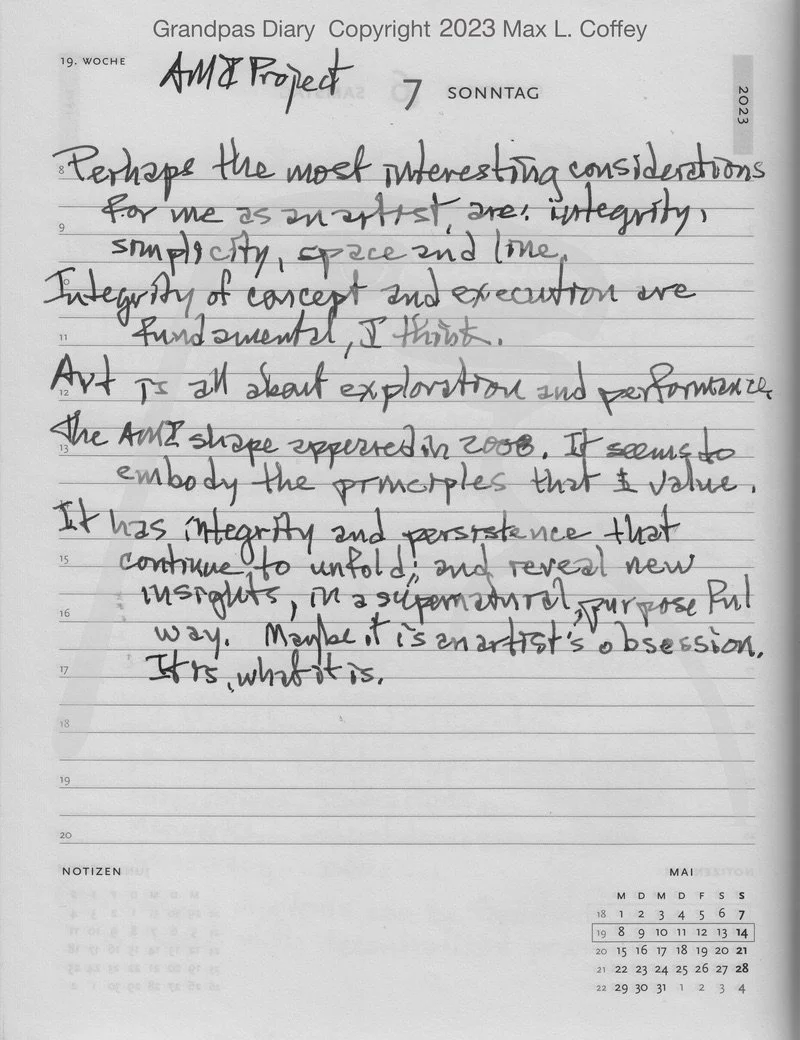 Grandpas Diary Copyright 2023 Max L. Coffey
19. WOCHE
AMI Project
7 SONNTAG
2023
8 Perhaps the most interesting considerations
for me as an artist, are: integrity,
9
simplicity, space and line.
Integrity of concept and execution are
11 fundamental, I think.
12 Art is all about exploration and performance.
13 The AMI shape appeared in 2008. It seems to
embody the principles that I value.
It has integrity and persistence that
15 continue to unfold; and reveal new
insights, in a supernatural, purposeful
16
way. Maybe it is an artist's obsession.
17 It is, what it is.
18
19
20
NOTIZEN
MAI
M D M D F S S
18 1 2 3 4 5 6 7
19 8 9 10 11 12 13 14
20 15 16 17 18 19 20 21
21 22 23 24 25 26 27 28
22 29 30 31 1 2 3 4